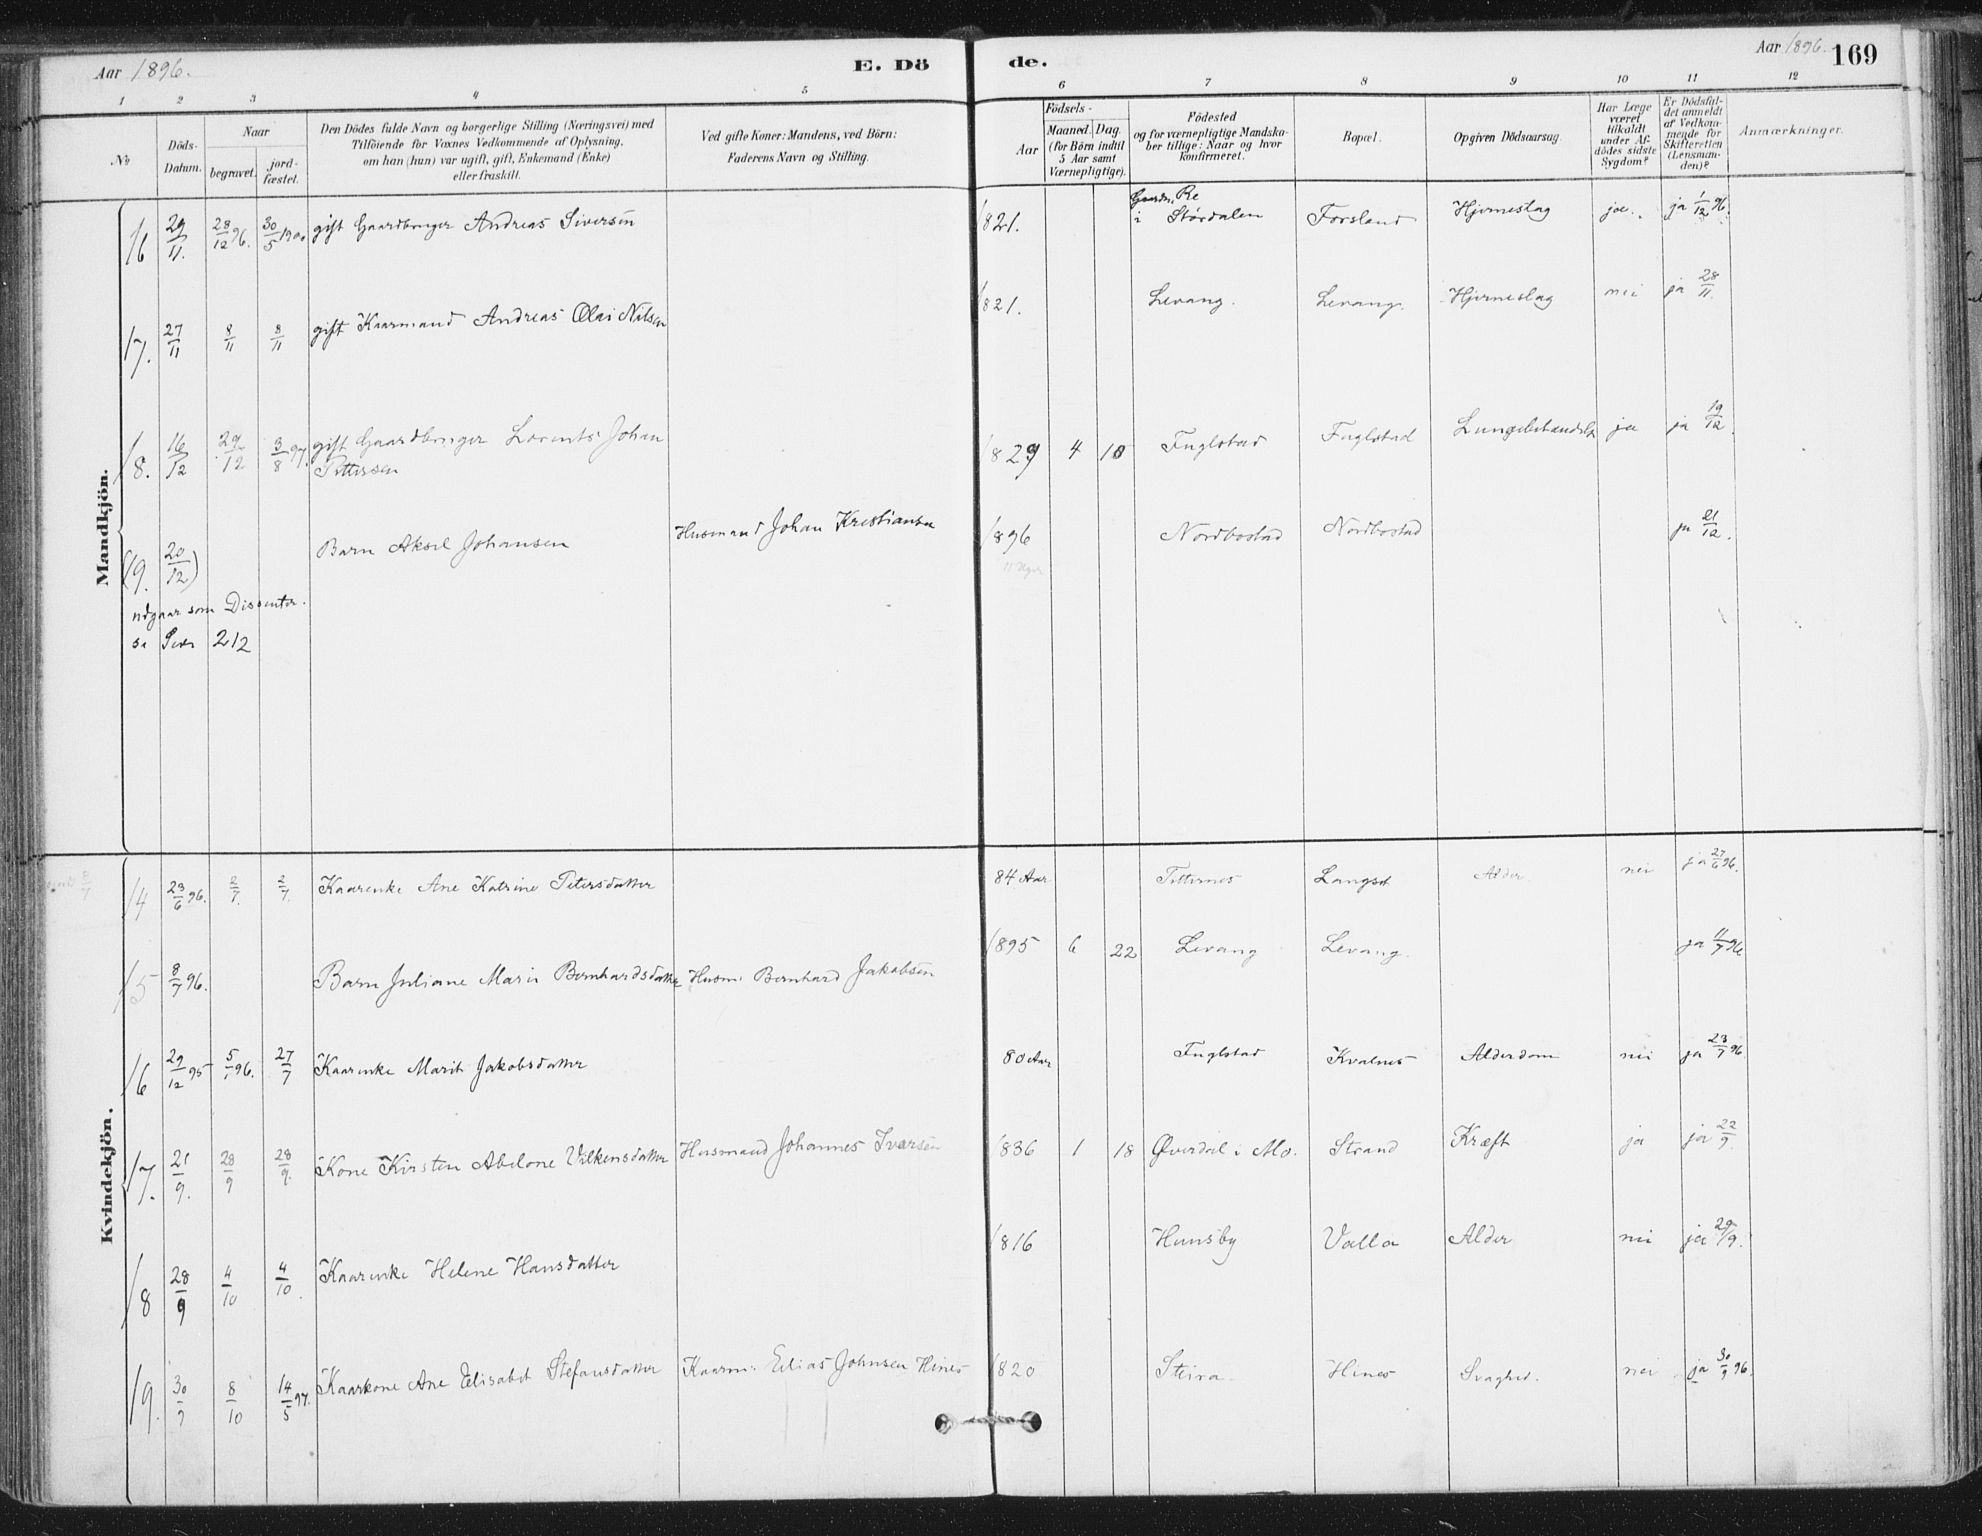 Aar 1896. E. Dö de. Aar 1896. 169
1 2 3 4 5 6 7 8 9 10 11 12
No Döds-Datum. Naar begravet. jord-fæstet. Den Dödes fulde Navn og borgerlige Stilling (Næringsvei) med Tilföiende for Voxnes Vedkommende af Oplysning, om han (hun) var ugift, gift, Enkemand (Enke) eller fraskilt. Ved gifte Koner: Mandens, ved Börn: Faderens Navn og Stilling. Födsels- Aar Maaned. Dag. (for Börn indtil 5 Aar samt Værnepligtige). Födested og for værnepligtige Mandskaber tillige: Naar og hvor konfirmeret. Bopæl. Opgiven Dödsaarsag. Har Læge været tilkaldt under Afdödes sidste Sygdom? Er Dödsfaldet anmeldt af Vedkommende for Skifteretten (Lensmanden)? Anmærkninger.
Mandkjön.
16 29/11. 28/12 96. 30/5 1900 gift Gaardbruger Andreas Siversen 1821. Gaarden Re i Stördalen Forsland Hjerneslag ja. ja 1/12 96.
17. 27/11 8/11 8/11 gift Kaarmand Andreas Olai Nilsen 1821. Levang. Levang. Hjerneslag nei ja 28/11.
18. 16/12 29/12 3/8 97. gift Gaardbruger Lorents Johan
Pettersen 1829 4 10 Fuglstad Fuglstad ja ja 19/12.
(19. 20/12) Barn Aksel Johansen Husmand Johan Kristiansen 1896 Nordbostad Nordbostad ja 21/12.
11 Uger
udgaar som Dissenter.
se Side 212
Kvindekjön.
14 23/6 96. 2/7. 2/7. Kaarenke Ane Katrine Petersdatter 84 Aar Titternes Langset Alder nei ja 27/6 96.
15 8/7 96. Barn Juliane Marie Bernhardsdatter Husm. Bernhard Jakobsen 1895 6 22 Levang Levang. ja 11/7 96
16 29/12 95 5/1 96. 27/7 Kaarenke Marit Jakobsdatter 80 Aar Fuglstad Kvalnes Alderdom nei ja 23/7 96
17. 21/9. 28/9 28/9. Kone Kirsten Abelone Vilkensdatter Husmand Johannes Ivarsen 1836 1 18 Øverdal i Mo. Strand Kræft ja ja 22/9.
18 28/9 4/10 4/10. Kaarenke Helene Hansdatter 1816 Hunsby Valla Alder nei ja 29/9.
19. 30/9 8/10 14/5 97. Kaarkone Ane Elisabet Stefansdatter Kaarm. Elias Johnsen Hines 1820 Steira Hines Svaghed. nei ja 30/9 96.